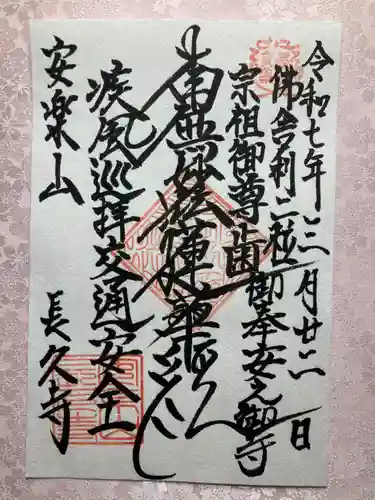 令和七年三月廿二日
佛舎利二粒
宗祖御尊歯 御奉安之御寺
南無妙法蓮華経
疾風巡拝交通安全
安楽山
長久寺